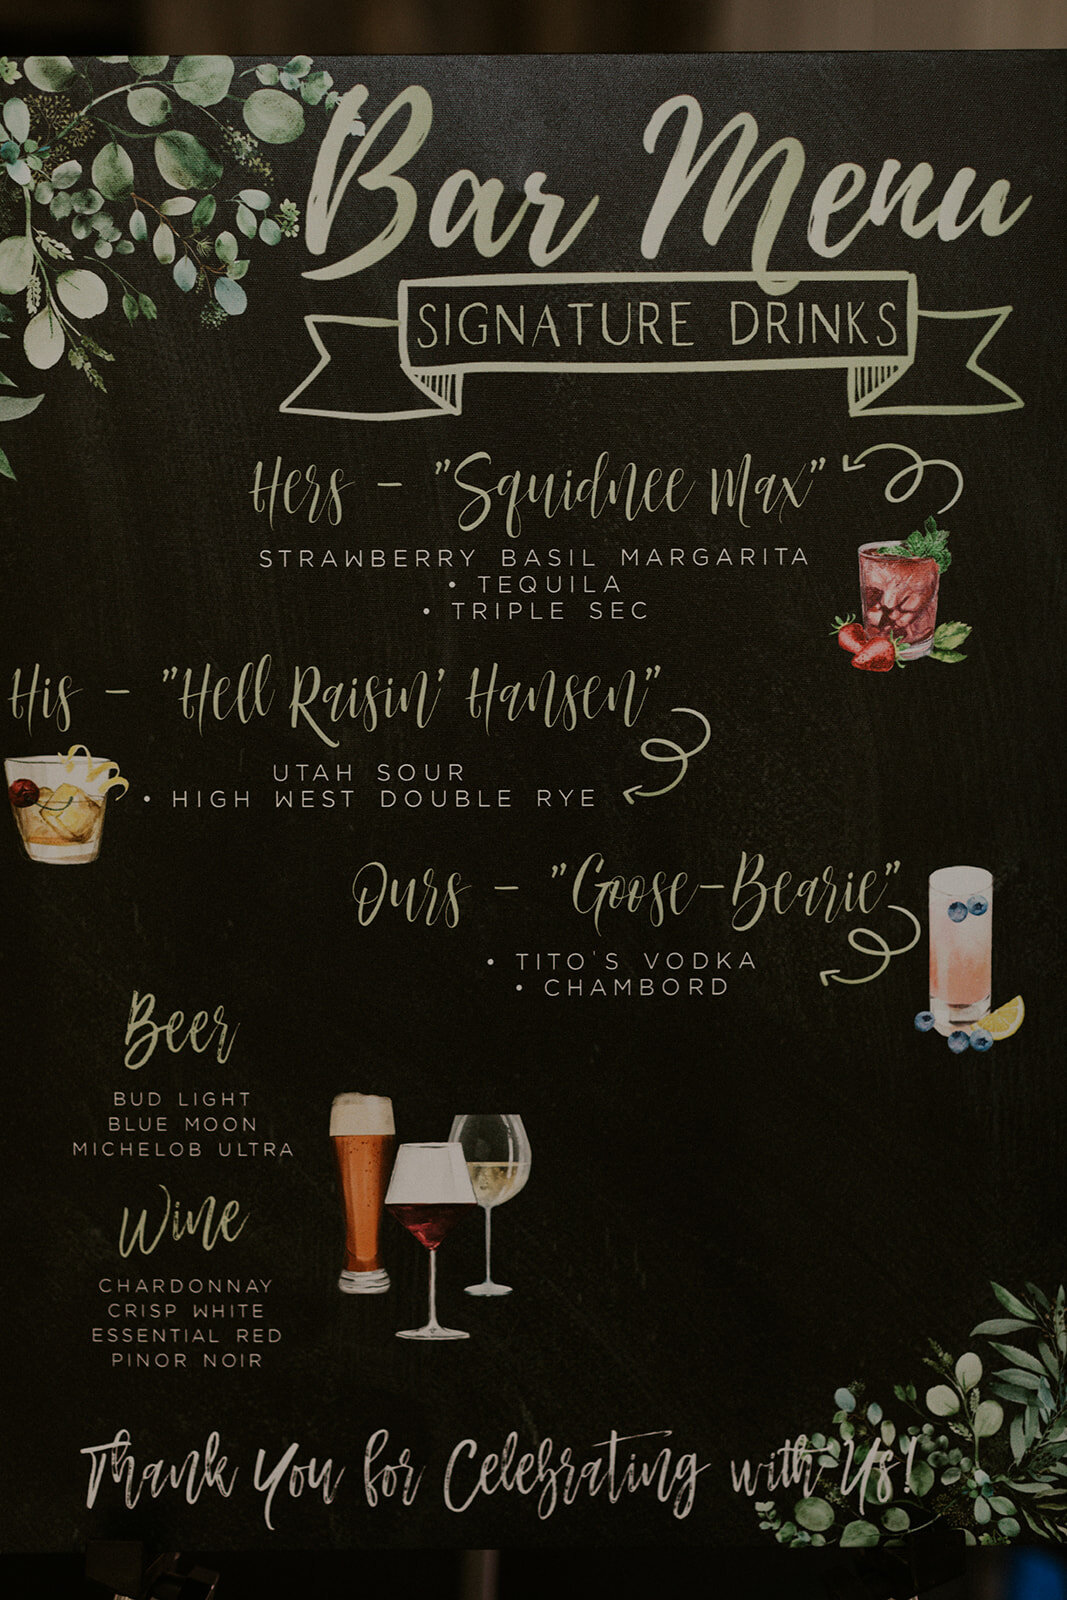 Bar Menu
SIGNATURE DRINKS
Hers - "Squidnee Max"
STRAWBERRY BASIL MARGARITA
• TEQUILA
• TRIPLE SEC
His - "Hell Raisin' Hansen"
UTAH SOUR
• HIGH WEST DOUBLE RYE
Ours - "Goose-Bearie"
• TITO'S VODKA
• CHAMBORD
Beer
BUD LIGHT
BLUE MOON
MICHELOB ULTRA
Wine
CHARDONNAY
CRISP WHITE
ESSENTIAL RED
PINOR NOIR
Thank You for Celebrating with Us!